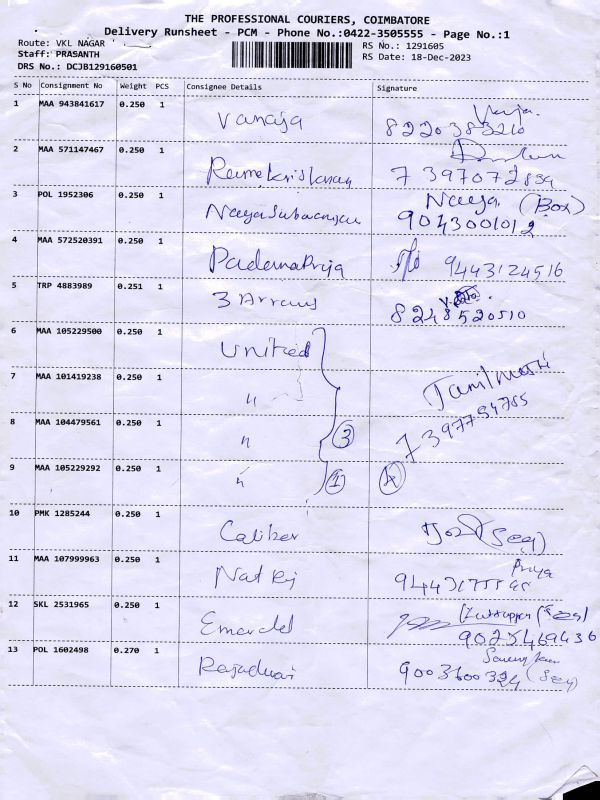 THE PROFESSIONAL COURIERS, COIMBATORE
Delivery Runsheet - PCM - Phone No.:0422-3505555 - Page No.:1
Route: VKL NAGAR
RS No.: 1291605
Staff: PRASANTH
RS Date: 18-Dec-2023
DRS No.: DCJB129160501
S No Consignment No Weight PCS Consignee Details Signature
1 MAA 943841617 0.250 1 Vanaja 8220383210
2 MAA 571147467 0.250 1 Ramakrishnan 7397072834
3 POL 1952306 0.250 1 Naya (Box)
9043001012
4 MAA 572520391 0.250 1 PadmaPriya 9443124516
5 TRP 4883989 0.251 1 3 Arrows 8248520510
6 MAA 105229500 0.250 1 United
7 MAA 101419238 0.250 1 " Tamilmani
8 MAA 104479561 0.250 1 " 3 7397754755
9 MAA 105229292 0.250 1 " 1 4
10 PMK 1285244 0.250 1 Caliber (Seal)
11 MAA 107999963 0.250 1 Priya
12 SKL 2531965 0.250 1 Emerald 9025469436
13 POL 1602498 0.270 1 Rajadurai 9003600324